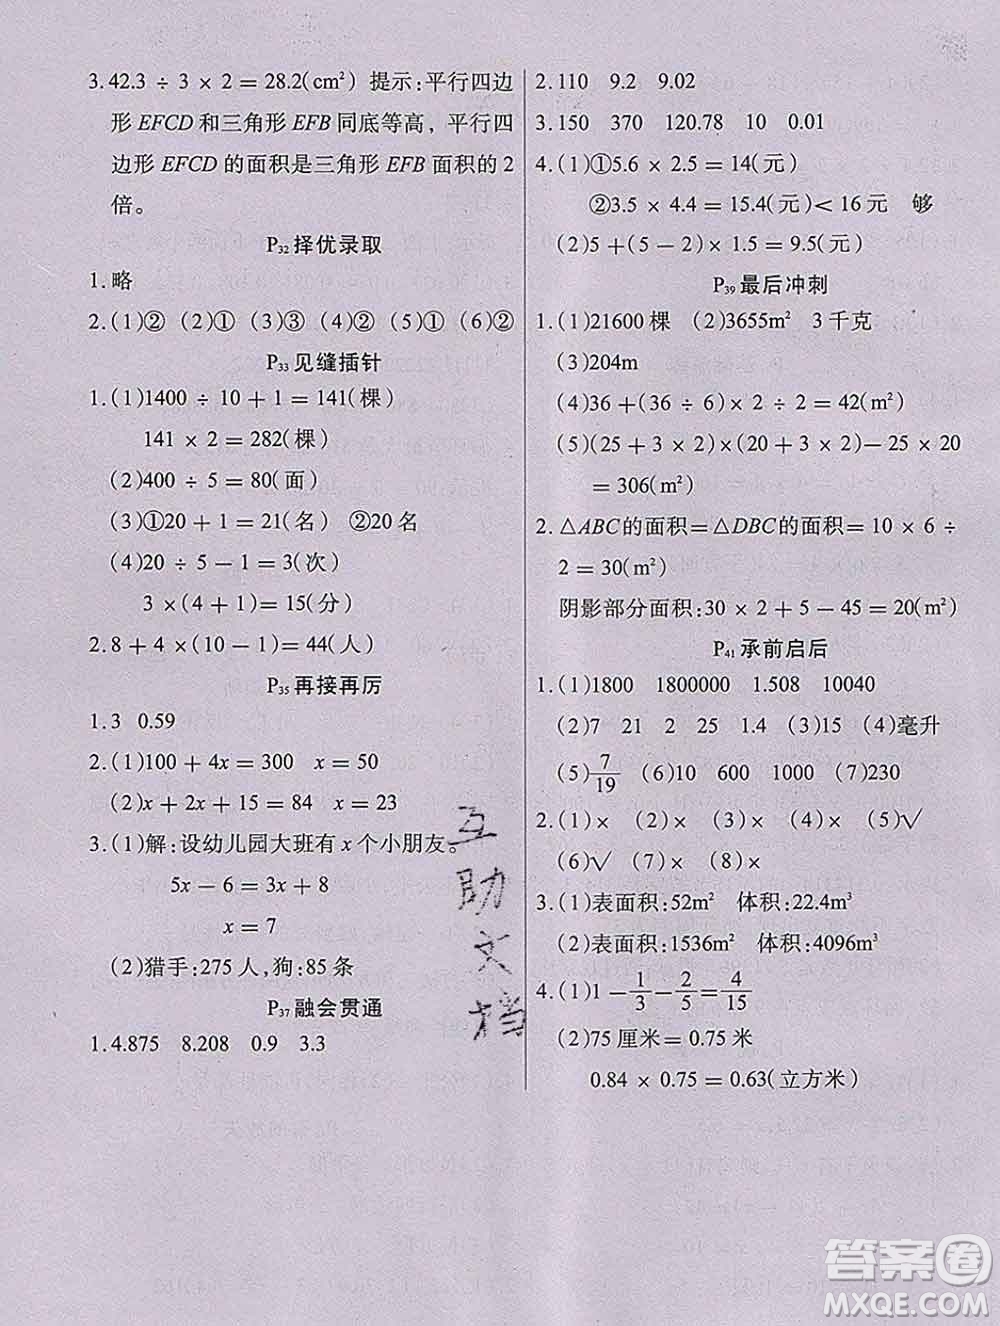 3. 42.3 ÷ 3 × 2 = 28.2(cm²) 提示:平行四边
形 EFCD 和三角形 EFB 同底等高，平行四
边形 EFCD 的面积是三角形 EFB 面积的 2
倍。
P32 择优录取
1. 略
2. (1)② (2)① (3)③ (4)② (5)① (6)②
P33 见缝插针
1. (1)1400 ÷ 10 + 1 = 141(棵)
141 × 2 = 282(棵)
(2)400 ÷ 5 = 80(面)
(3)①20 + 1 = 21(名) ②20 名
(4)20 ÷ 5 - 1 = 3(次)
3 × (4 + 1) = 15(分)
2. 8 + 4 × (10 - 1) = 44(人)
P35 再接再厉
1. 3 0.59
2. (1)100 + 4x = 300 x = 50
(2)x + 2x + 15 = 84 x = 23
3. (1)解:设幼儿园大班有 x 个小朋友。
5x - 6 = 3x + 8
x = 7
(2)猎手:275 人,狗:85 条
P37 融会贯通
1. 4.875 8.208 0.9 3.3
2. 110 9.2 9.02
3. 150 370 120.78 10 0.01
4. (1)①5.6 × 2.5 = 14(元)
②3.5 × 4.4 = 15.4(元) < 16 元 够
(2)5 + (5 - 2) × 1.5 = 9.5(元)
P39 最后冲刺
1. (1)21600 棵 (2)3655m² 3 千克
(3)204m
(4)36 + (36 ÷ 6) × 2 ÷ 2 = 42(m²)
(5)(25 + 3 × 2) × (20 + 3 × 2) - 25 × 20
= 306(m²)
2. △ABC的面积 = △DBC的面积 = 10 × 6 ÷
2 = 30(m²)
阴影部分面积:30 × 2 + 5 - 45 = 20(m²)
P41 承前启后
1. (1)1800 1800000 1.508 10040
(2)7 21 2 25 1.4 (3)15 (4)毫升
(5)7/19 (6)10 600 1000 (7)230
2. (1)× (2)× (3)× (4)× (5)√
(6)√ (7)× (8)× (9)×
3. (1)表面积:52m² 体积:22.4m³
(2)表面积:1536m² 体积:4096m³
4. (1)1 - 1/3 - 2/5 = 4/15
(2)75 厘米 = 0.75 米
0.84 × 0.75 = 0.63(立方米)
互
助
文
档
答案圈
MXQE.COM